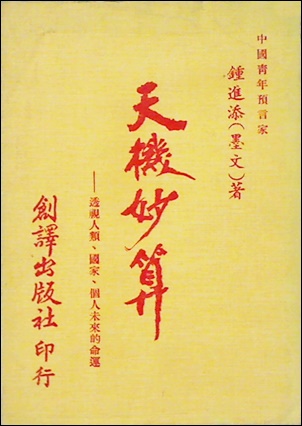 中國青年預言家
鍾進添(墨文)著
天機妙算
——透視人類、國家、個人未來的命運
創譯出版社 印行